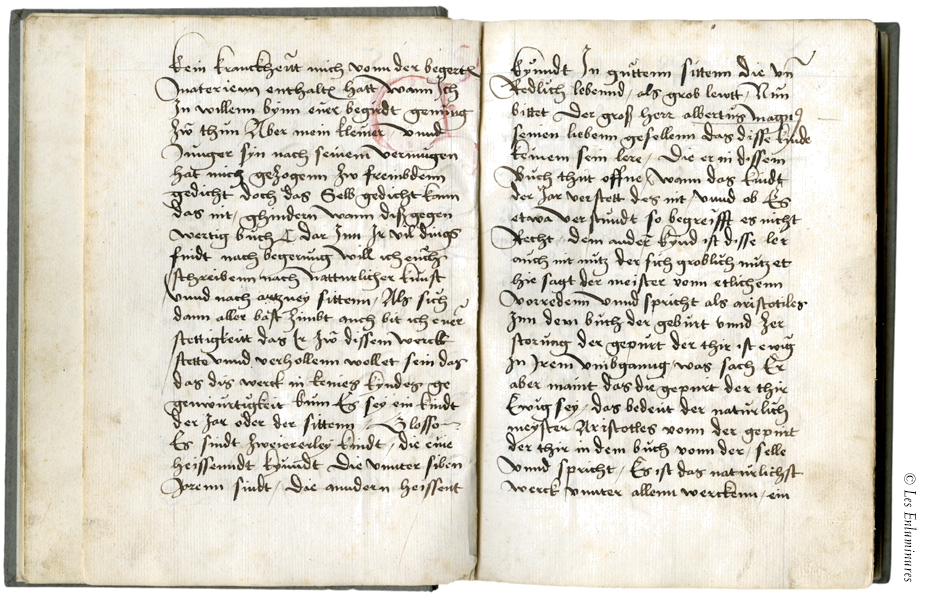 kein kranckheytt mich vonn der begertn
materienn enthaltn hatt wann Ich
In willenn bynn euer begirdt genung
Zů thun Aber mein kleiner vnnd
Junger sin nach seinem vermugen
hat mich gezogenn zw frembdem
gedicht doch das Selb gedicht kann
das nit ghindern wann diß gegen
wertig buch dar Inn Ir vil dings
findt nach begerung will ich euch
schreibenn nach natturlicher kunst
vnnd nach artzney sittenn Als sich
dann aller bast Zimbt auch bit ich euer
stettigkeitt das Ir Zů dissem werck
stette vnnd verhollenn wollet sein das
das dis werck in keines kyndes ge
genwurtigkeit kum Es sey ein kindt
der Jar oder der sittenn / Glosso
Es sindt zweiererley kindt / die eine
heissenndt kynndt Die vnnter siben
Jarenn sindt / Die anndern heissent
kynndt In guttenn sittenn die vn
Redlich lebennd / als grob lewtt / Nun
bittet der groß herr albertus magnus
seinen liebenn gesellenn das disse kinde
keinem sein lere / Die er in dissem
Buch thut offne / wann das kindt
der Jar verstett des nit vnnd ob Es
etwa verstundt so begreifft es nicht
Recht / dem ander kynd ist disse ler
auch nit nutz der sich groblich nutzet
hie sagt der meister vonn etlichenn
vorredenn vnnd spricht als aristotiles
Inn dem buch der geburt vnnd Zer
storung der gepurt der thir ist ewig
In Irem vmbganng / was sach Er
aber maint das die gepurt der thir
Ewig sey / das bedeut der naturlich
meyster Aristotles vonn der gepurt
der thir in dem buch vonn der / selle
Vnnd spricht / Es ist das naturlichst
werck vnnter allenn werckenn / ein
© Les Enluminures